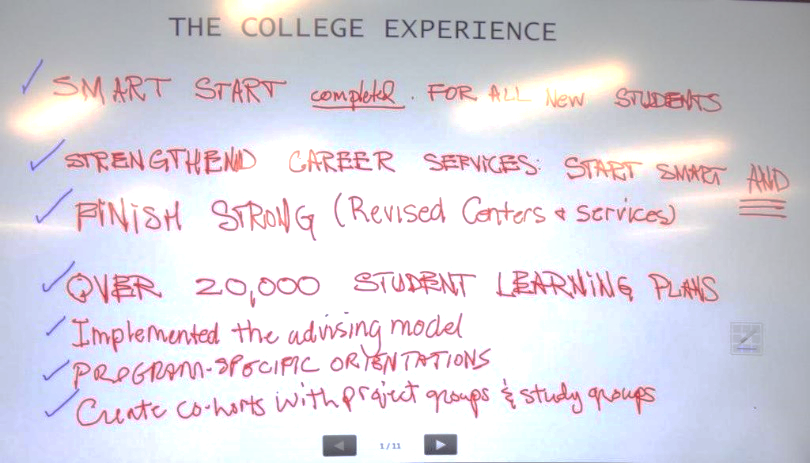 THE COLLEGE EXPERIENCE
✓ SMART START completed. FOR ALL New STUDENTS
✓ STRENGTHEND CAREER SERVICES: START SMART AND
✓ FINISH STRONG (Revised Centers & services)
✓ OVER 20,000 STUDENT LEARNING PLANS
✓ Implemented the advising model
✓ PROGRAM-SPECIFIC ORIENTATIONS
✓ Create co-horts with project groups & study groups
1/11